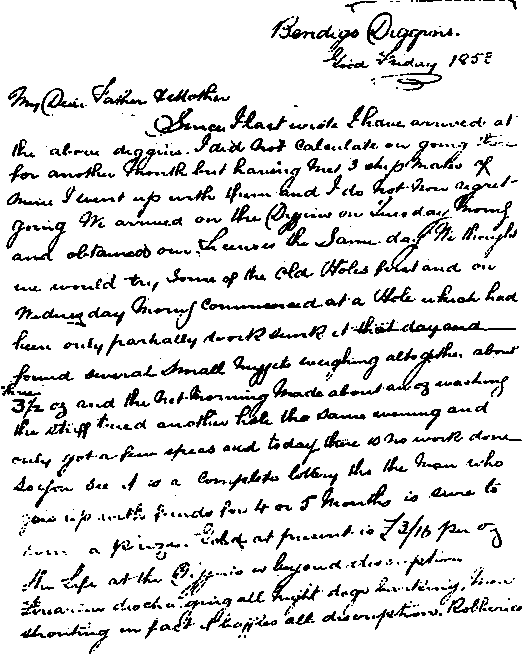 Bendigo Diggins.
Good Friday 185
My Dear Father & Mother
Since I last wrote I have arrived at
the above diggins. I did not calculate on going
for another Month but having met 3 ship Mates of
mine I went up with them and I do not now regret
going We arrived on the Diggins on Tuesday Morng
and obtained our Licences the same day We thought
we would try some of the old Holes first and on
Wednesday Morng Commenced at a Hole which had
been only partially work sunk it that day and
found several small Nuggets weighing altogether about
3½ oz and the next Morning Made about an oz washing
the stuff tried another hole the same evening and
only got a few specs and today there is no work done
So you see it is a complete lottery tho the Man who
goes up with funds for 4 or 5 Months is sure to
a Prize. Gold at present is £3/16 per oz
The Life at the Diggins is beyond discription
going all night dogs barking, Men
shouting in fact it baffles all discription. Robberies